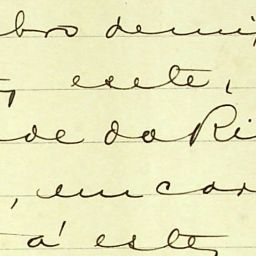 bro demi
, esete,
de do Ri
, em car
a' este